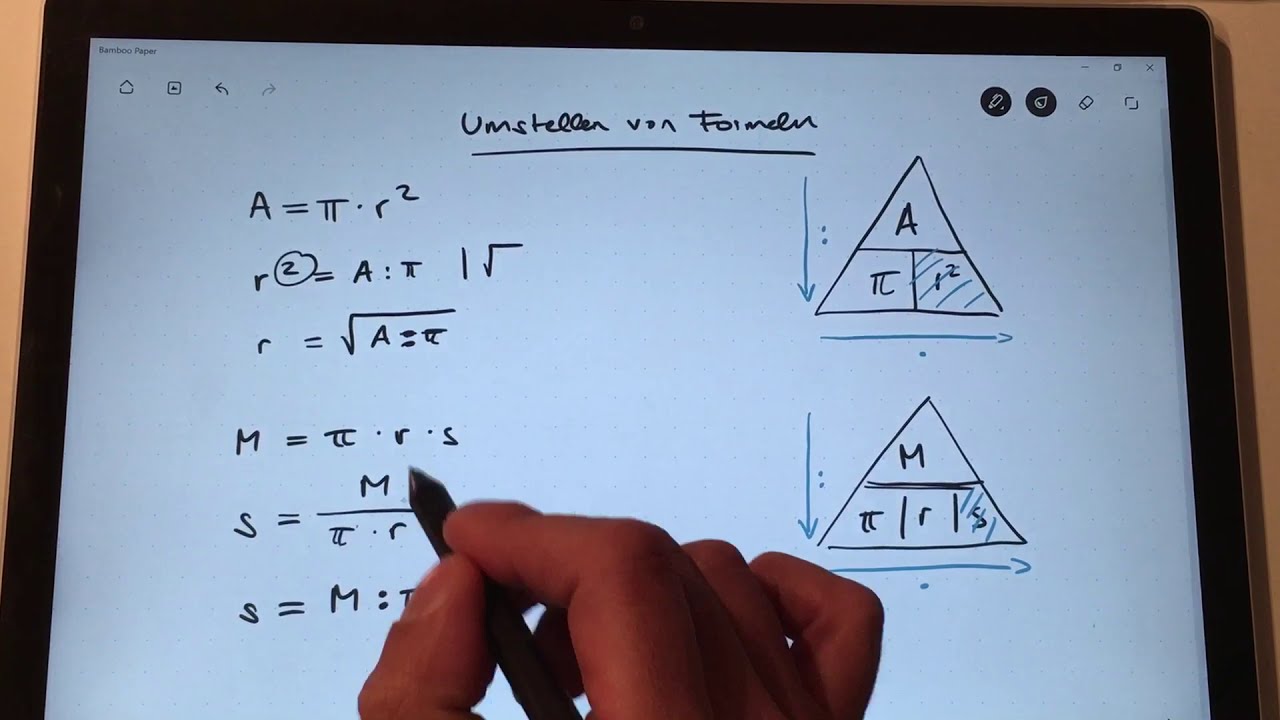 Bamboo Paper
Umstellen von Formeln
A = π · r²
r² = A : π | √
r = √A : π
M = π · r · s
s = M / π · r
s = M :
:
A
π r²
·
:
M
π | r | s
·